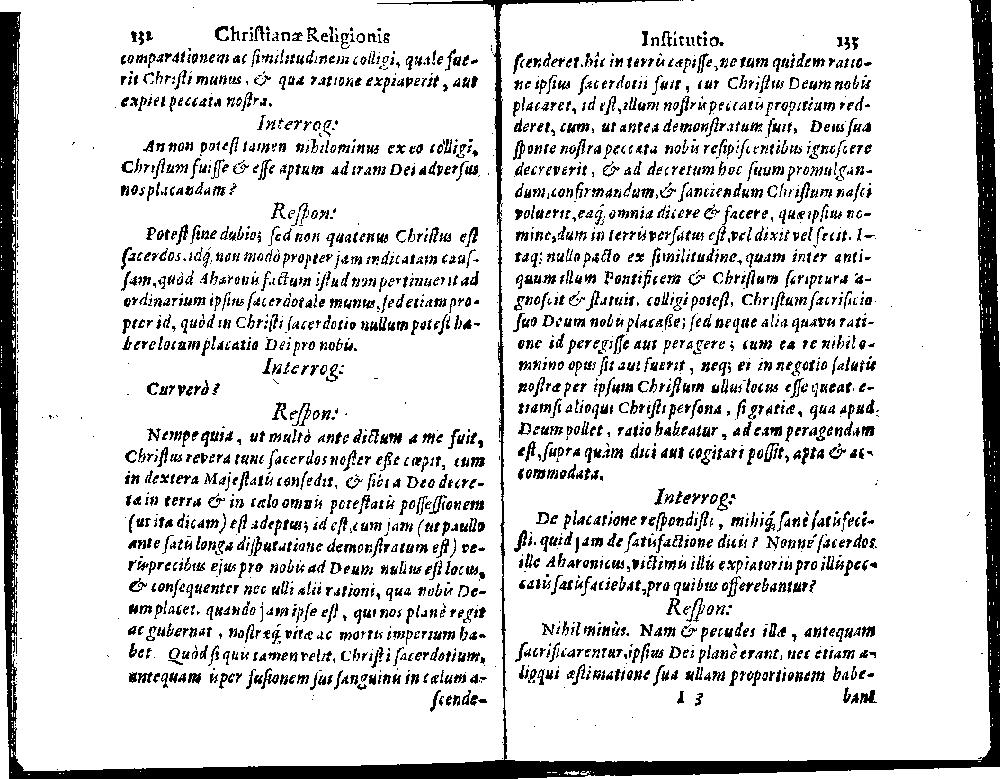 132 Christianæ Religionis
comparationem ac similitudinem colligi, quale fue-
rit Christi munus, & qua ratione expiaverit, aut
expiet peccata nostra.
Interrog:
An non potest tamen nihilominus ex eo colligi,
Christum fuisse & esse aptum ad iram Dei adversus
nos placandam?
Respon:
Potest sine dubio; sed non quatenus Christus est
sacerdos. idq; non modò propter jam indicatam caus-
sam, quòd Aharonis factum istud non pertinuerit ad
ordinarium ipsius sacerdotale munus, sed etiam pro-
pter id, quòd in Christi sacerdotio nullum potest ha-
bere locum placatio Dei pro nobis.
Interrog:
Cur verò?
Respon:
Nempe quia, ut multò ante dictum a me fuit,
Christus revera tunc sacerdos noster esse cœpit, cum
in dextera Majestatis consedit, & sibi a Deo decre-
ta in terra & in cælo omnis potestatis possessionem
(ut ita dicam) est adeptus; id est, cum jam (ut paullo
ante satis longa disputatione demonstratum est) ve-
ris precibus ejus pro nobis ad Deum nullus est locus,
& consequenter nec ulli alii rationi, qua nobis De-
um placet. quando jam ipse est, qui nos planè regit
ac gubernat, nostræq; vitæ ac mortis imperium ha-
bet. Quòd si quis tamen velit, Christi sacerdotium,
antequam is per fusionem sui sanguinis in cælum a-
scende-
Institutio. 133
scenderet, hic in terris cœpisse, ne tum quidem ratio-
ne ipsius sacerdotii fuit, cur Christus Deum nobis
placaret, id est, illum nostris peccatis propitium red-
deret, cum, ut antea demonstratum fuit, Deus sua
sponte nostra peccata nobis resipiscentibus ignoscere
decreverit, & ad decretum hoc suum promulgan-
dum, confirmandum, & sanciendum Christum nasci
voluerit, eaq; omnia dicere & facere, quæ ipsius no-
mine, dum in terris versatus est, vel dixit vel fecit. I-
taq; nullo pacto ex similitudine, quam inter anti-
quum illum Pontificem & Christum scriptura a-
gnoscit & statuit, colligi potest, Christum sacrificio
suo Deum nobis placasse; sed neque alia quavis rati-
one id peregisse aut peragere; cum ea re nihil o-
mnino opus sit aut fuerit, neq; ei in negotio salutis
nostræ per ipsum Christum ullus locus esse queat. e-
tiamsi alioqui Christi persona, si gratiæ, qua apud
Deum pollet, ratio habeatur, ad eam peragendam
est, supra quàm dici aut cogitari possit, apta & ac-
commodata.
Interrog:
De placatione respondisti, mihiq; sanè satis feci-
sti. quid jam de satisfactione dicis? Nonne sacerdos
ille Aharonicus, victimis illis expiatoriis pro illis pec-
catis satisfaciebat, pro quibus offerebantur?
Respon:
Nihil minùs. Nam & pecudes illæ, antequam
sacrificarentur, ipsius Dei planè erant, nec etiam a-
lioqui æstimatione sua ullam proportionem habe-
I 3 bant